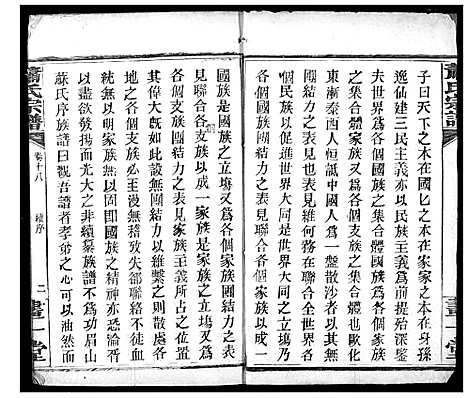 子曰天下之本在國國之本在家家之本在身孫
逸仙建三民主義亦以民族主義爲首提始深鑒
夫世界爲各個國族之集合體國族又爲各個家族
之集合體家族又爲各個支族之集合體也歐化
東漸泰西人恒詆中國人爲一盤散沙者以其無
國結力之表見也表見維何務在聯合全世界各
個國族以促進世界大同是世界大同之立塲乃
爲各個國族團結力之表見聯合各家族以成一
國族是國族之立塲又爲各個家族團結力之表
見聯合各支族以成一家族是家族之立塲又爲
各個支族團結力之表見家族主義所占之價値
其偉大若此設無團結力以維繫之則散處各
方之支族必至漫無稽攷失却聯絡不徒血
統無以明家族無以固即國族之精神亦恐淪胥
以盡欲發揚而光大之非續纂族譜不爲功眉山
蘇氏序族譜曰觀吾譜者孝弟之心可以油然而
蕭氏宗譜
卷十八
續序
二
書一堂